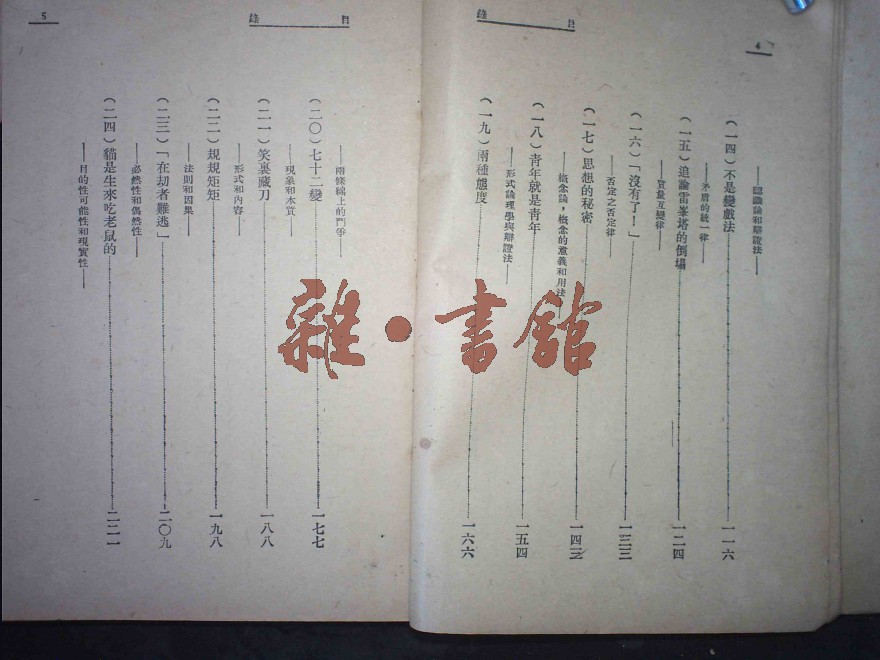 目錄
4
——認識論和辯證法——
（一四）不是變戲法……一一六
——矛盾的統一律——
（一五）追論雷峯塔的倒塌……一二四
——質量互變律——
（一六）「沒有了！」……一三三
——否定之否定律——
（一七）思想的秘密……一四三
——概念論，概念的意義和用法——
（一八）青年就是青年……一五四
——形式論理學與辯證法——
（一九）兩種態度……一六六
目錄
5
——兩條線上的鬥爭——
（二〇）七十二變……一七七
——現象和本質——
（二一）笑裏藏刀……一八八
——形式和內容——
（二二）規規矩矩……一九八
——法則和因果——
（二三）「在刼者難逃」……二〇九
——必然性和偶然性——
（二四）貓是生來吃老鼠的……二二一
——目的性可能性和現實性——
雜·書館